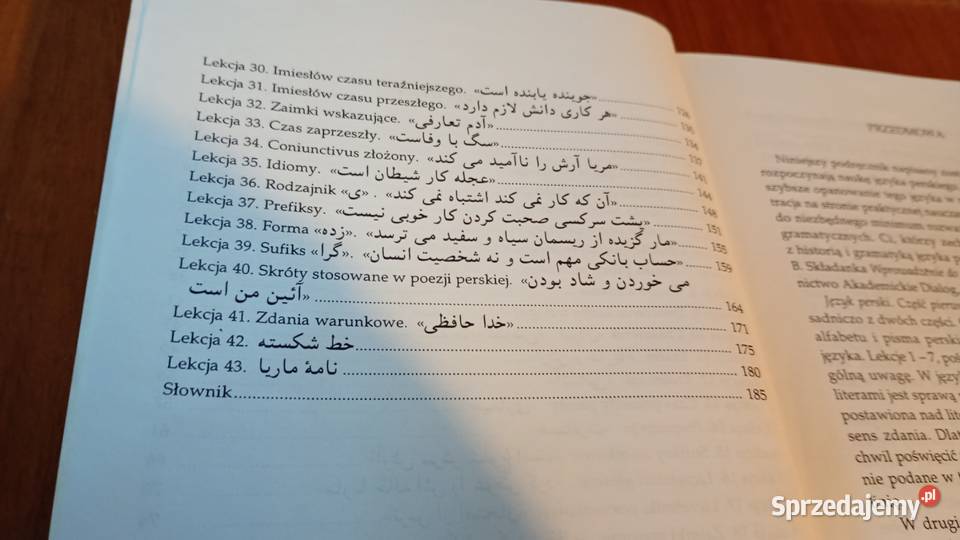 Lekcja 30. Imiesłów czasu teraźniejszego. «جوینده یابنده است»
Lekcja 31. Imiesłów czasu przeszłego. «هر کاری دانش لازم دارد»
Lekcja 32. Zaimki wskazujące. «آدم تعارفی»
Lekcja 33. Czas zaprzeszły. «سگ با وفاست»
Lekcja 34. Coniunctivus złożony. «مریا آرش را ناآمید می کند» 141
Lekcja 35. Idiomy. «عجله کار شیطان است» 144
Lekcja 36. Rodzajnik «ی» . «آن که کار نمی کند اشتباه نمی کند» 148
Lekcja 37. Prefiksy. «پشت سرکسی صحبت کردن کار خوبی نیست» 151
Lekcja 38. Forma «زده». «مار گزیده از ریسمان سیاه و سفید می ترسد» 155
Lekcja 39. Sufiks «گرا». «حساب بانکی مهم است و نه شخصیت انسان» 159
Lekcja 40. Skróty stosowane w poezji perskiej. «می خوردن و شاد بودن
آئین من است» 164
Lekcja 41. Zdania warunkowe. «خدا حافظی» 171
Lekcja 42. خط شکسته 175
Lekcja 43. نامهٔ ماریا 180
Słownik 185
PRZEDMOWA
Niniejszy podręcznik napisany
rozpoczynają naukę języka perskiego.
szybsze opanowanie tego języka w
tracja na stronie praktycznej
do niezbędnego minimum
gramatycznych. Ci, którzy
z historią i gramatyką języka
B. Składanka Wprowadzenie do
nictwo Akademickie Dialog,
Język perski. Część
sadniczo z dwóch części.
alfabetu i pisma
języka. Lekcje 1–7,
gólną uwagę. W
literami jest sprawą
postawiona nad
sens zdania.
chwil poświęcić
nie podane w
W
Sprzedajemy.pl